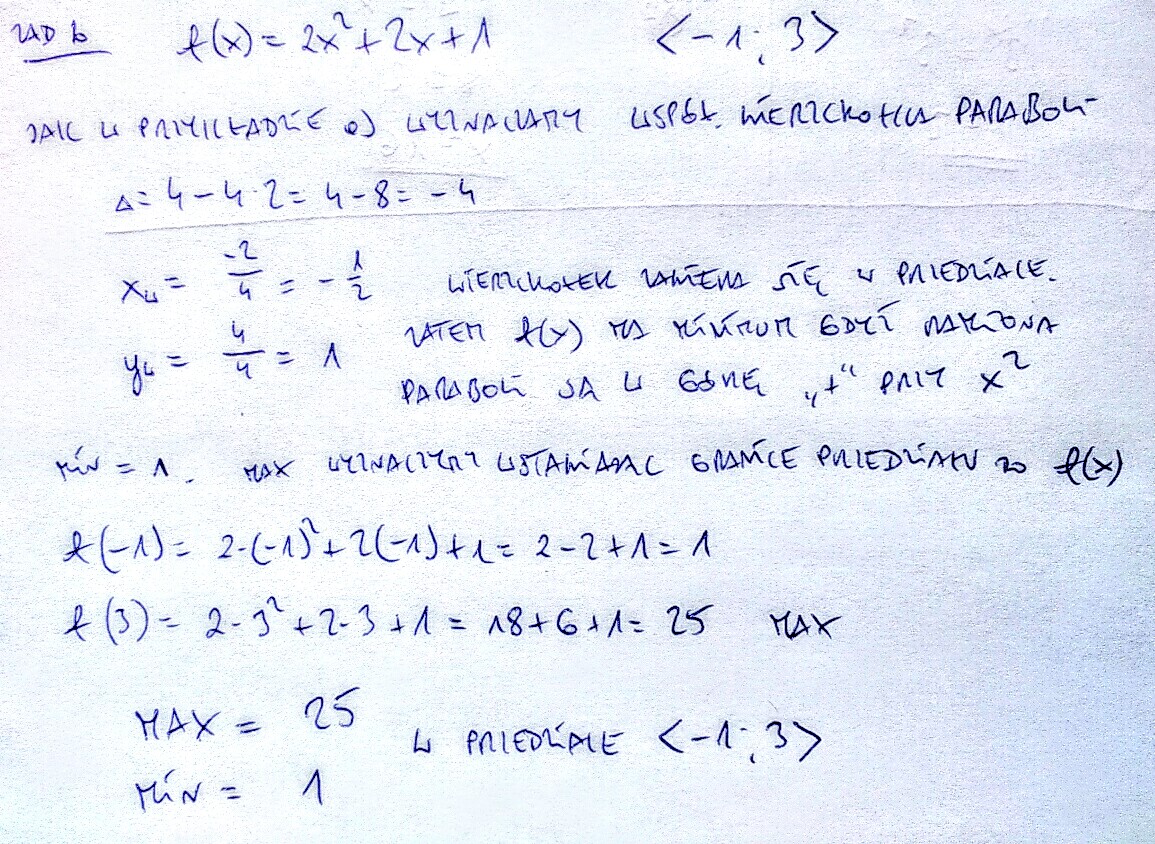 ZAD b f(x) = 2x²+2x+1 <-1; 3>
JAK W PRZYKŁADZIE a) WYZNACZAMY WSPÓŁ. WIERZCHOŁKA PARABOLI
Δ= 4-4·2= 4-8= -4
xw = -2/4 = -1/2 WIERZCHOŁEK ZAWIERA SIĘ W PRZEDZIALE.
yw = 4/4 = 1 ZATEM f(x) MA MINIMUM GDYŻ RAMIONA
PARABOLI SĄ W GÓRĘ „+" PRZY x²
MIN = 1. MAX WYZNACZYMY WSTAWIAJĄC GRANICE PRZEDZIAŁU DO f(x)
f(-1)= 2·(-1)²+2(-1)+1= 2-2+1=1
f(3)= 2·3²+2·3+1 = 18+6+1= 25 MAX
MAX = 25
W PRZEDZIALE <-1; 3>
MIN = 1